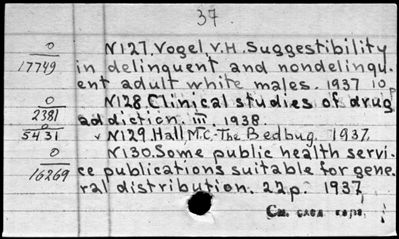 37
0
17749
N127. Vogel, V.H. Suggestibility
in delinquent and nondelinqu-
ent adult white males. 1937 10p
0
2381
N128. Clinical studies of drug
addiction. III. 1938.
0
5431
N129. Hall, M.C. The Bedbug. 1937.
0
16269
N130. Some public health servi-
ce publications suitable for gene-
ral distribution. 22p. 1937
См. след карт.